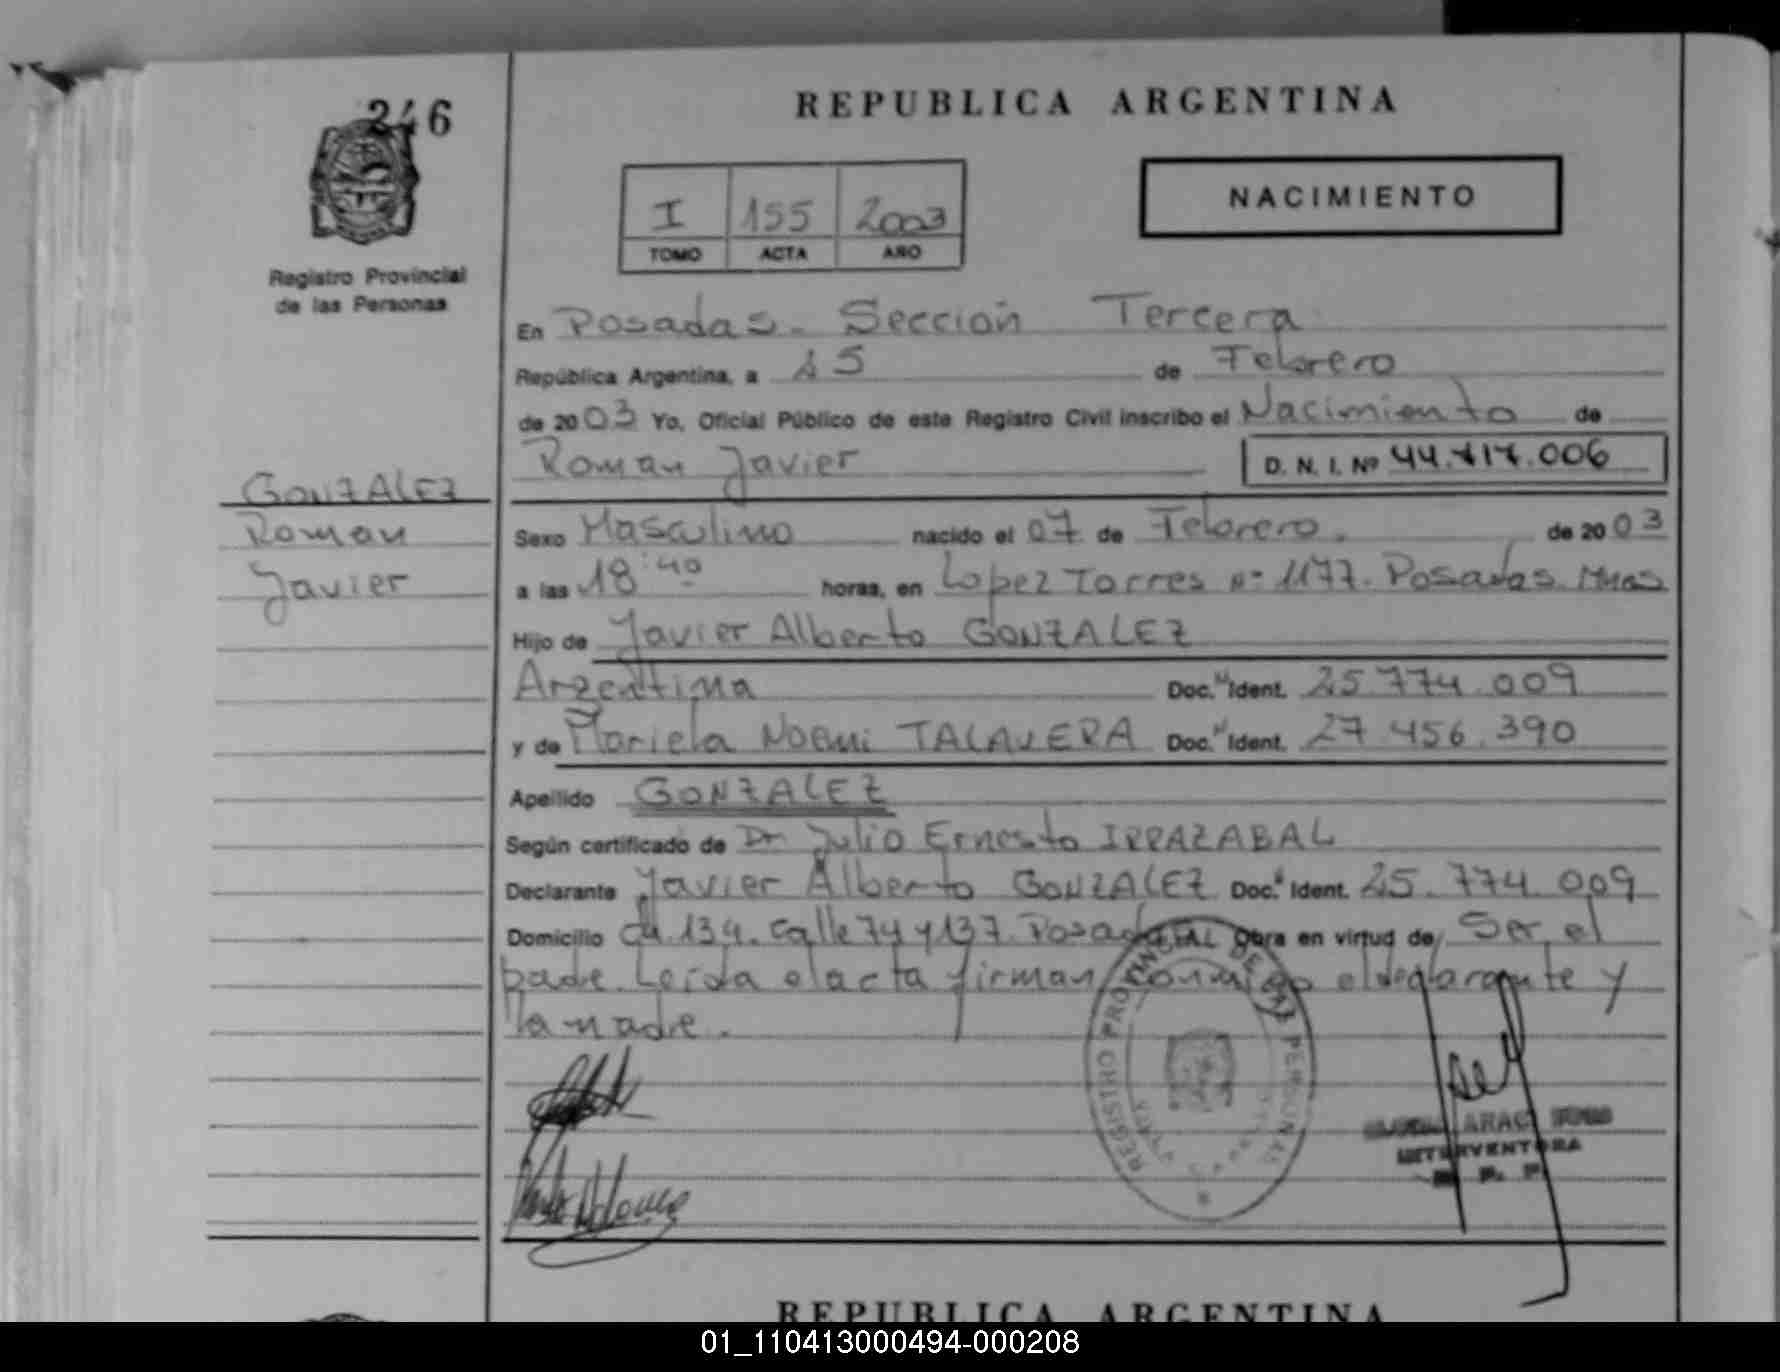 246
REPUBLICA ARGENTINA
I 155 2003
TOMO ACTA AÑO
NACIMIENTO
Registro Provincial
de las Personas
En Posadas. Sección Tercera
República Argentina, a 15 de Febrero
de 2003 Yo, Oficial Público de este Registro Civil inscribo el Nacimiento de
Roman Javier D. N. I. Nº
GONZALEZ
Roman
Javier
Sexo Masculino nacido el 07 de Febrero. de 2003
a las 18:40 horas, en Lopez Torres Nº 1177. Posadas. Mnes
Hijo de Javier Alberto GONZALEZ
Argentina Doc. Ident. 25.774.009
y de Mariela Noemi TALAVERA Doc. Ident. 27.456.390
Apellido GONZALEZ
Según certificado de Dr Julio Ernesto IRRAZABAL
Declarante Javier Alberto GONZALEZ Doc. Ident. 25.774.009
Domicilio Ch. 134. Calle 74 y 137. Posadas Obra en virtud de Ser el
padre. Leida el acta firman conmigo el declarante y
la madre.
REGISTRO PROVINCIAL DE LAS PERSONAS
INTERVENTORA
R. P. P.
REPUBLICA ARGENTINA
01_110413000494-000208